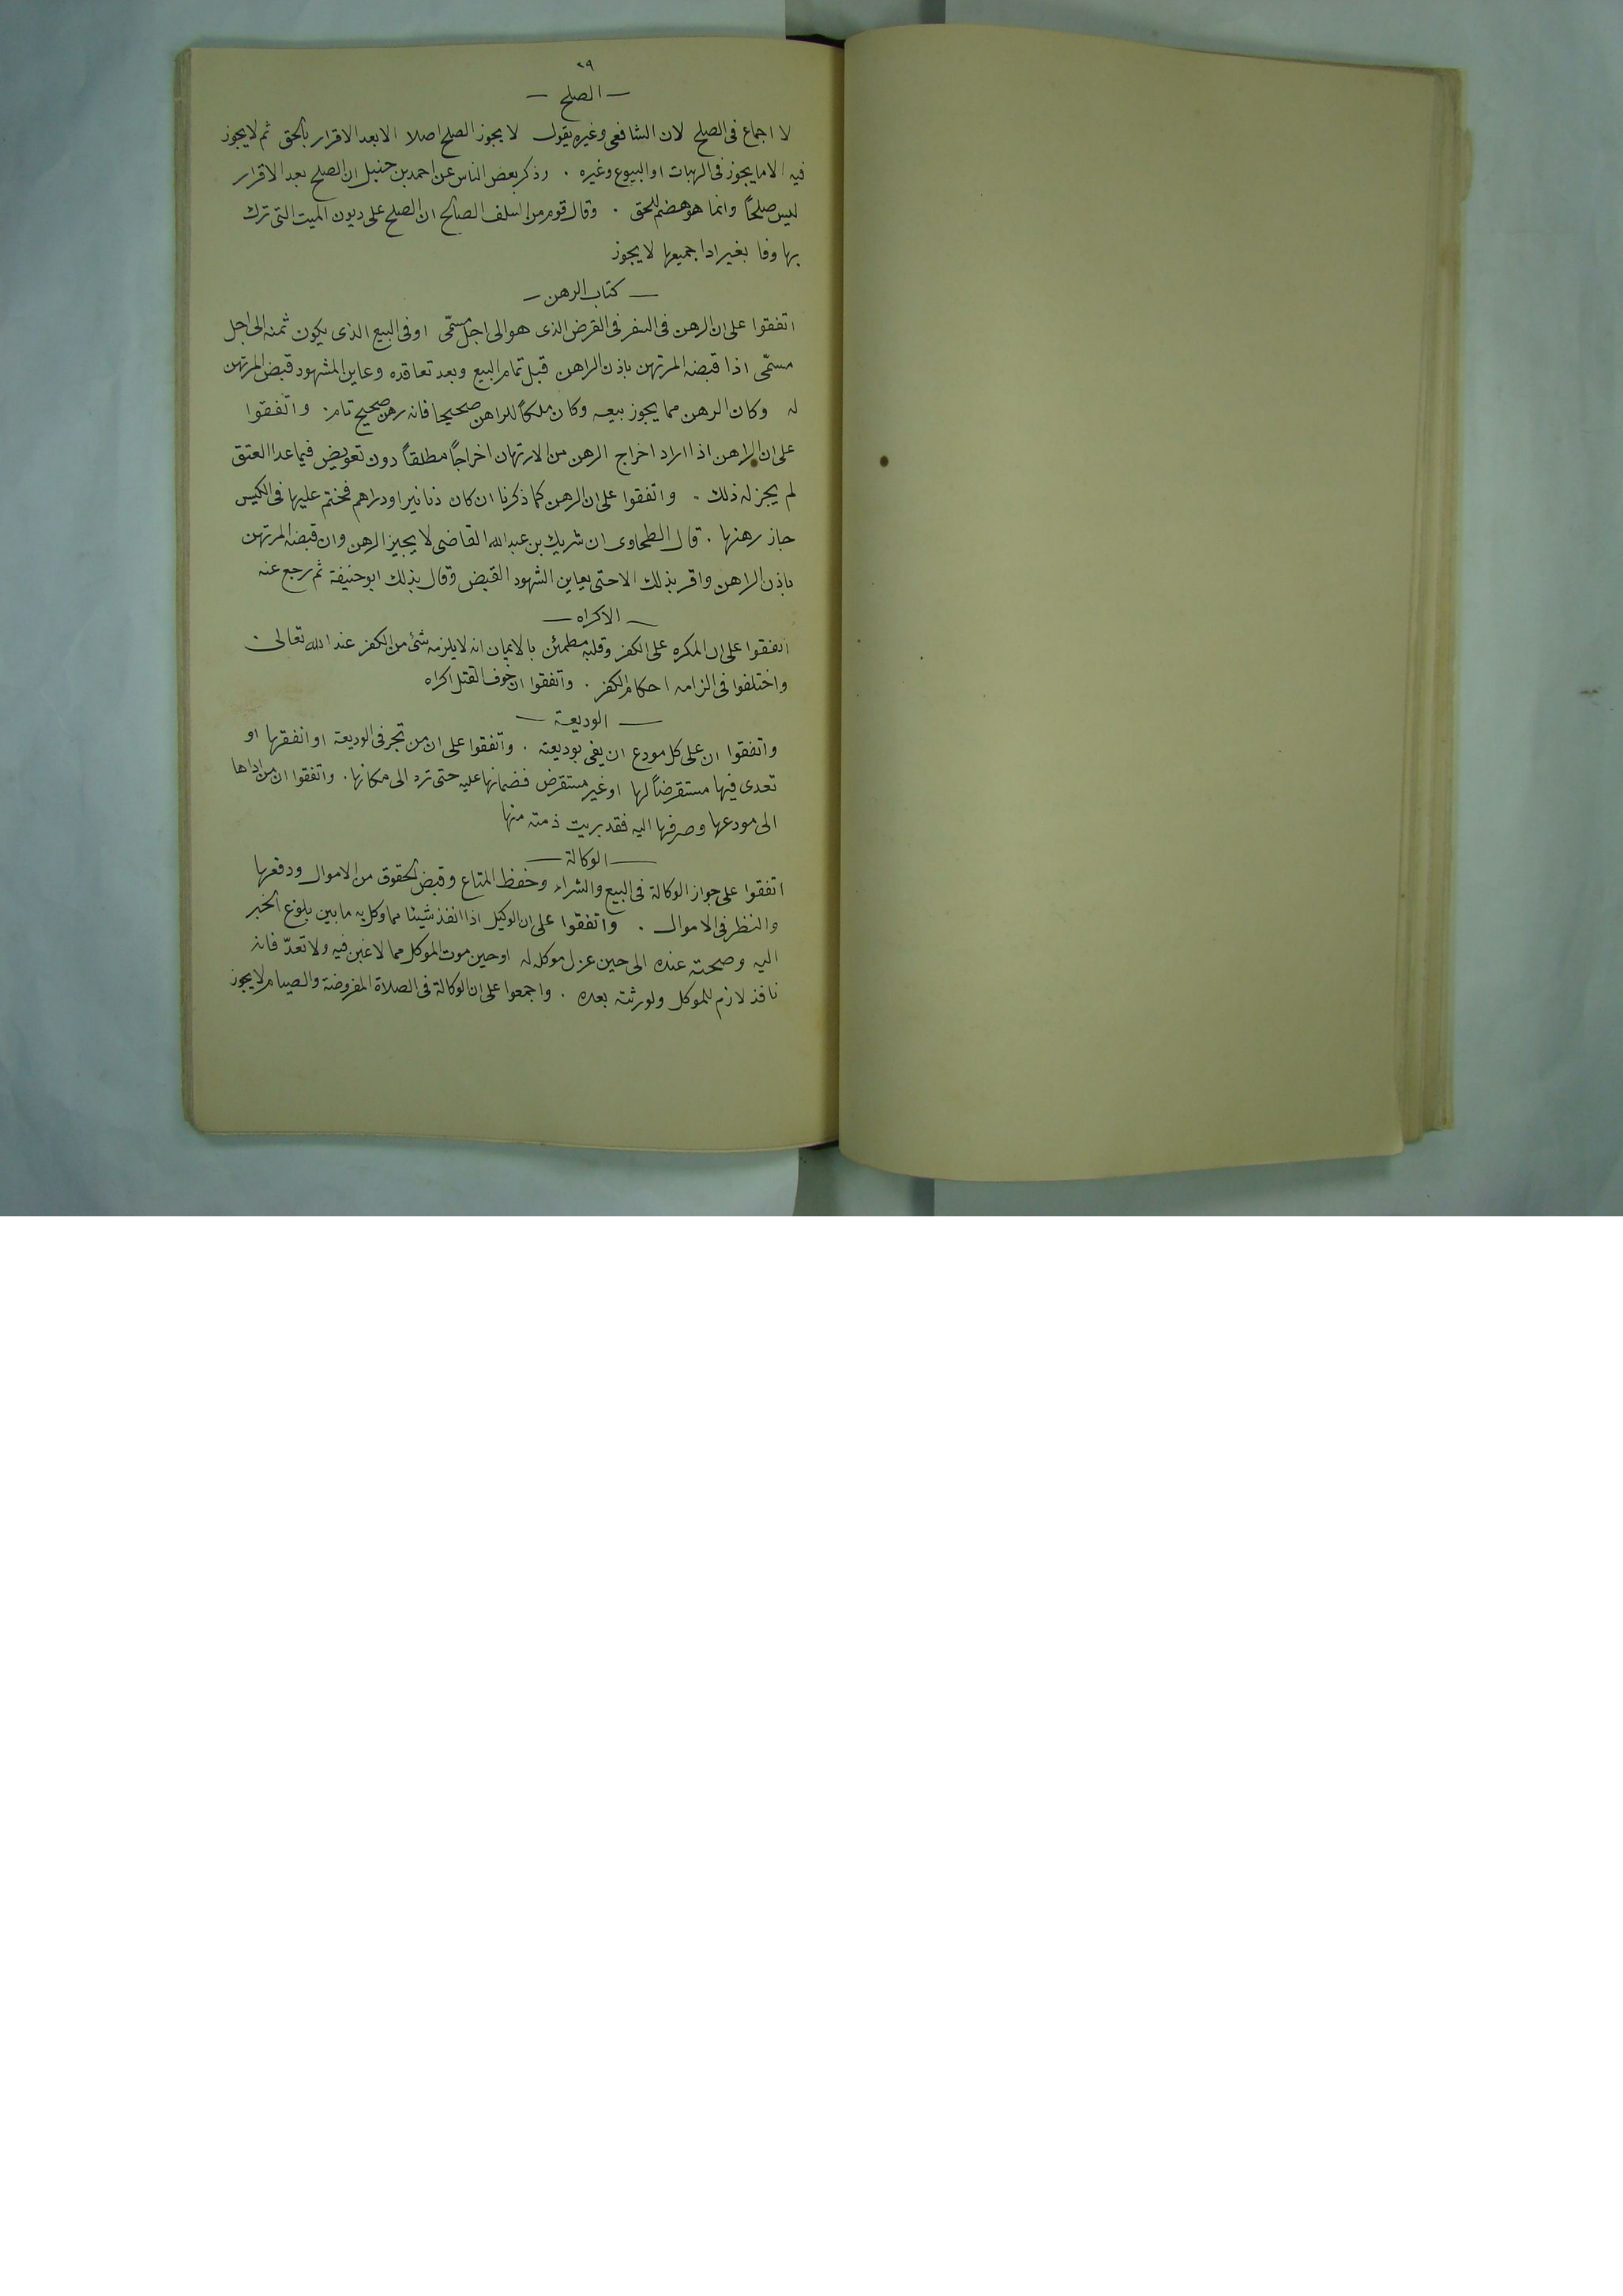 ٢٩
— الصلح —
لا اجماع فى الصلح لان الشافعى وغيره يقول لا يجوز الصلح اصلا الا بعد الاقرار بالحق ثم لا يجوز
فيه الا ما يجوز فى الهبات او البيوع وغيره . وذكر بعض الناس عن احمد بن حنبل ان الصلح بعد الاقرار
ليس صلحاً وانما هو هضم للحق . وقال قوم من السلف الصالح ان الصلح على ديون الميت التى ترك
بها وفا بغير ادا جميعها لا يجوز
— كتاب الرهن —
اتفقوا على ان الرهن فى السفر فى القرض الذى هو الى اجل مسمّى او فى البيع الذى يكون ثمنه الى اجل
مسمّى اذا قبضه المرتهن باذن الراهن قبل تمام البيع وبعد تعاقده وعاين المشهود قبض المرتهن
له وكان الرهن مما يجوز بيعه وكان ملكاً للراهن صحيحا فانه رهن صحيح تام . واتفقوا
على ان الراهن اذا اراد اخراج الرهن من الارتهان اخراجاً مطلقاً دون تعويض فيما عدا العتق
لم يجز له ذلك . واتفقوا على ان الرهن كما ذكرنا ان كان دنانير او دراهم فختم عليها فى الكيس
جاز رهنها . قال الطحاوى ان شريك بن عبد الله القاضى لا يجيز الرهن وان قبضه المرتهن
باذن الراهن واقر بذلك الا حتى يعاين الشهود القبض وقال بذلك ابو حنيفة ثم رجع عنه
— الاكراه —
اتفقوا على ان المكره على الكفر وقلبه مطمئن بالايمان انه لا يلزمه شئ من الكفر عند الله تعالى .
واختلفوا فى الزامه احكام الكفر . واتفقوا ان خوف القتل اكراه
— الوديعة —
واتفقوا ان على كل مودع ان يفى بوديعته . واتفقوا على ان من تجر فى الوديعة او انفقها او
تعدى فيها مستقرضاً لها او غير مستقرض فضمانها عليه حتى ترد الى مكانها . واتفقوا ان من اداها
الى مودعها وصرفها اليه فقد بريت ذمته منها
— الوكالة —
اتفقوا على جواز الوكالة فى البيع والشراء وحفظ المتاع وقبض الحقوق من الاموال ودفعها
والنظر فى الاموال . واتفقوا على ان الوكيل اذا انفذ شيئا مما وكل به ما بين بلوغ الخبر
اليه وصحته عنده الى حين عزل موكله له او حين موت الموكل مما لا غبن فيه ولا تعدّ فانه
نافذ لازم للموكل ولورثته بعده . واجمعوا على ان الوكالة فى الصلاة المفروضة والصيام لا يجوز